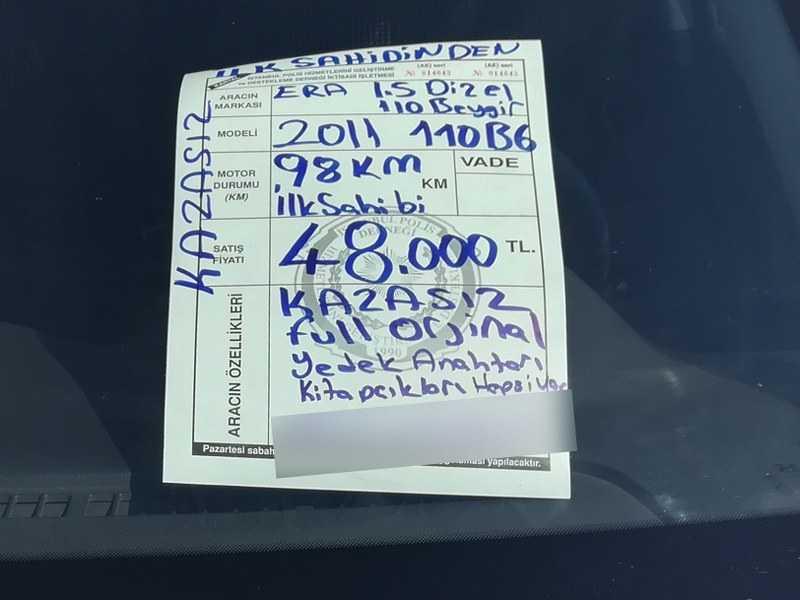 İLK SAHİDİNDEN
İSTANBUL POLİS HİZMETLERİNİ GELİŞTİRME
ve DESTEKLEME DERNEĞİ İKTİSADİ İŞLETMESİ
(AE) seri
№ 014643
(AE) seri
№ 014643
KAZASIZ
ARACIN
MARKASI
ERA 1.5 Dizel
110 Beygir
MODELİ
2011 110 BG
MOTOR
DURUMU
(KM)
98 KM
İlk Sahibi
KM
VADE
SATIŞ
FİYATI
48.000 TL.
ARACIN ÖZELLİKLERİ
KAZASIZ
full orjinal
Yedek Anahtarı
Kitapcıkları Hepsi Var
1990
Pazartesi sabah
yapılacaktır.